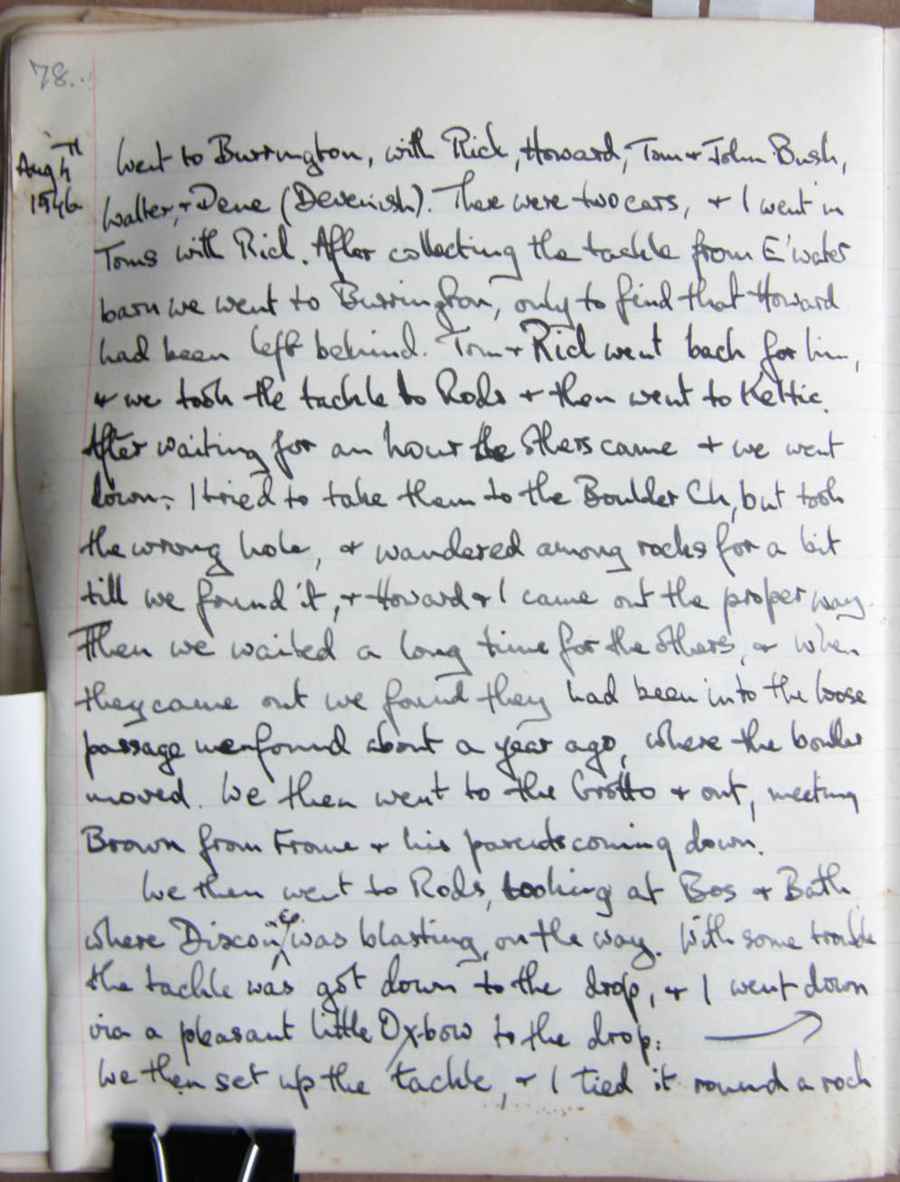 78..
Aug 4TH
1946
Went to Burrington, with Rich, Howard, Tom + John Bush,
Walter, + Dene (Devenish). There were two cars, + I went in
Toms with Rich. After collecting the tackle from E'water
barn we went to Burrington, only to find that Howard
had been left behind. Tom + Rich went back for him,
+ we took the tackle to Rods + then went to Keltic.
After waiting for an hour the others came + we went
down. I tried to take them to the Boulder Ch, but took
the wrong hole, + wandered among rocks for a bit
till we found it, + Howard + I came out the proper way.
Then we waited a long time for the others, + when
they came out we found they had been into the loose
passage we found about a year ago, where the boulder
moved. We then went to the Grotto + out, meeting
Brown from Frome + his parents coming down.
We then went to Rods, looking at Bos + Bath
where was blasting, on the way. With some trouble
the tackle was got down to the drop, + I went down
via a pleasant little Ox-bow to the drop:
We then set up the tackle, + I tied it round a rock